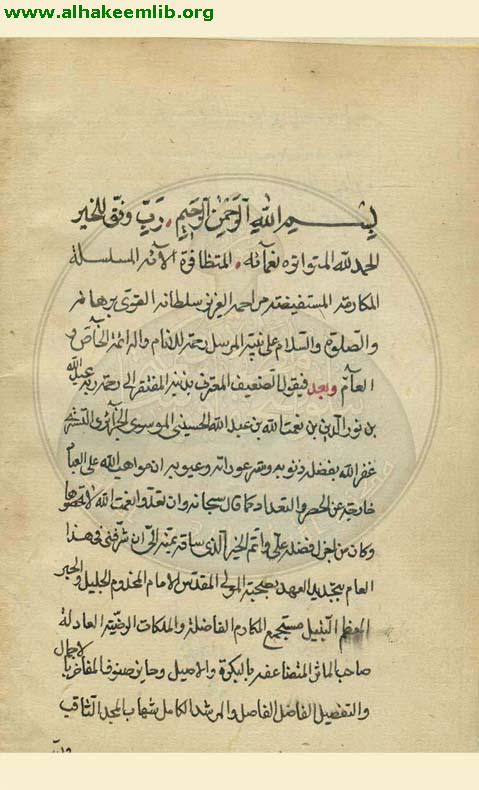 www.alhakeemlib.org
بسم الله الرحمن الرحيم رب وفق للخير
الحمد لله المتواتره نعمائه المتظافرة الآئه المسلسلة
مكارمه المستفيضة مراحمه العزيز سلطانه القوى برهانه
والصلوة والسلام على نبيه المرسل رحمة للانام واله ائمة الخاص و
العام وبعد فيقول الضعيف المعترف بذنبه المفتقر الى رحمة ربه عبد الله
بن نور الدين بن نعمت الله بن عبد الله الحسينى الموسوى الجزائرى التسترى
غفر الله بفضله ذنوبه وستر عوراته وعيوبه ان مواهب الله على العباد
خارجة عن الحصر والتعداد كما قال سبحانه وان تعدوا نعمت الله لا تحصوها
وكان من اجل فضله علي واتم الخير الذى ساقه بمنه الي ان شرفنى فى هذا
العام بتجديد العهد بصحبة المولى المقدس الامام المخدوم الجليل والحبر
المعظم النبيل مستجمع المكارم الفاضلة والملكات الرضية العادلة
صاحب المآثر المتضاعفه بالبكرة والاصيل وحايز صنوف المفاخر بالاجمال
والتفصيل الفاضل الفاصل والمرشد الكامل شهاب المجد الثاقب